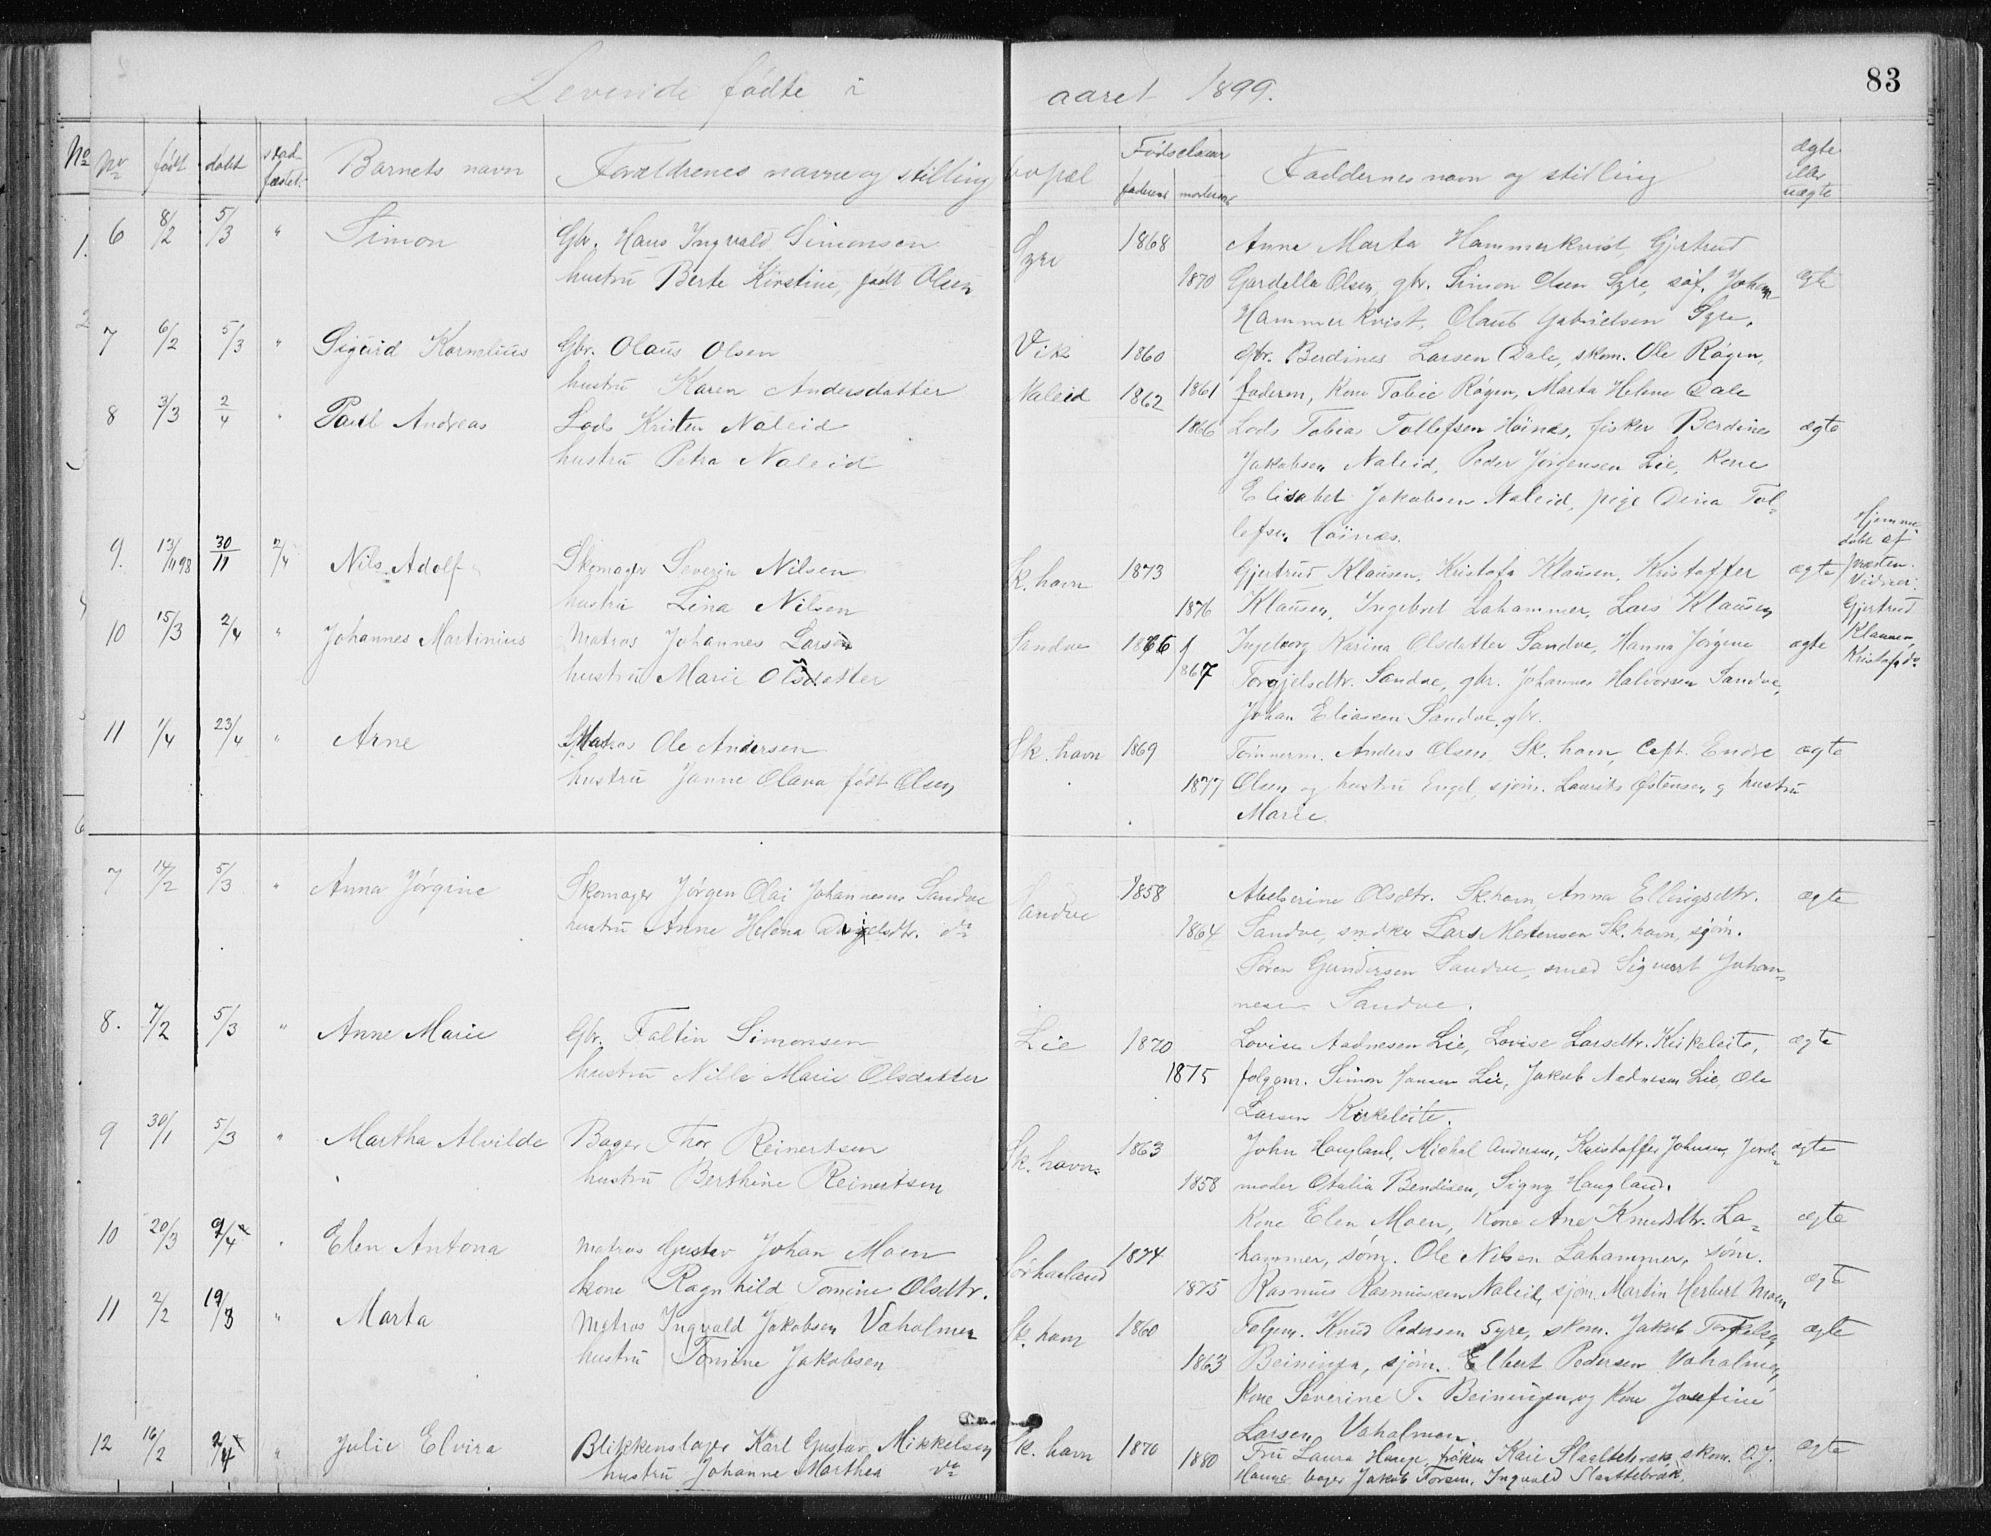 83
Levende fødte i aaret 1899.
No No født døbt stad- fæstet Barnets navn Forældrenes navne og stilling bopæl Fødselsaar faderens moderens Faddernes navn og stilling ægte eller uægte
6 8/2 5/3 " Simon Gbr. Hans Ingvald Simonsen Syre 1868 Anna Marta Hammerkvist, Gjertrud
hustru Berte Kirstine, født Olsen 1870 Gardella Olsen, gbr. Simon Olsen Syre, søf. Johan ægte
Hammerkvist, Olaus Gabrielsen Syre.
7 6/2 5/3 " Sigurd Kornelius Gbr. Olaus Olsen Vik 1860 Gbr. Berdines Larsen Dale, skom. Ole Røgen,
hustru Karen Andersdatter 1861 faderen, Kone Tobie Røgen, Marta Helene Dale
8 3/3 2/4 " Paul Andreas Lods Kristen Naleid Naleid 1862 1866 Lods Tobias Tollefsen Høinæs, fisker Berdines ægte
hustru Petra Naleid Jakobsen Naleid, Peder Jørgensen Lie, Kone
Elisabet Jakobsen Naleid, pige Dina Tol-
lefsen Høinæs.
9. 13/11 98 30/11 2/4 Nils Adolf Skomager Severin Nilsen Sk. havn 1873 Gjertrud Klausen, Kristofa Klausen, Kristoffer ægte Hjemme- døbt af præsten. Vidner:
hustru Lina Nilsen 1876 Klausen, Ingebret Lahammer, Lars Klausen Gjertrud
10 15/3 2/4 " Johannes Martinius Matros Johannes Larsen Sandve 1866 Ingeborg Karina Olsdatter Sandve, Hanna Jørgine ægte Klausen,
hustru Marie Olsdatter 1867 Torgjelsdtr. Sandve, gbr. Johannes Halvorsen Sandve, Kristofa do
Johan Eliassen Sandve gbr.
11 1/4 23/4 " Arne Matros Ole Andersen Sk. havn 1869 Tømmerm. Anders Olsen Sk. havn, Capt. Endre ægte
hustru Janne Olava født Olsen 1877 Olsen og hustru Engel, sjøm. Laurits Østensen og hustru
Marie.
7 14/2 5/3 " Anna Jørgine Skomager Jørgen Olai Johannesen Sandve Sandve 1858 Abelserine Olsdtr. Sk.havn, Anna Ellingsdtr. ægte
hustru Anne Helena do 1864 Sandve, snedker Lars Mortensen Sk. havn, sjøm.
Søren Gundersen Sandve, smed Sigvart Johan-
nesen Sandve.
8. 7/2 5/3 " Anne Marie Gbr. Faltin Simonsen Lie 1870 Lovise Aadnesen Lie, Lovise Larsdtr. Kirkeleite, ægte
hustru Nille Marie Olsdatter 1875 folgem. Simon Jansen Lie, Jakob Aadnesen Lie, Ole
Larsen Kirkeleite.
9 30/1 5/3 " Martha Alvilde Bager Thor Reinertsen Sk. havn 1863 John Haugland, Michal Andersen, Kristoffer Johnsen, Jorde- ægte
hustru Berthine Reinertsen 1858 moder Otalia Bendixen, Signy Haugland.
10 20/3 9/4 " Elen Antona Matros Gustav Johan Moen Sørhaaland 1874 Kone Elen Moen, Kone Ane Knudsdtr. La- ægte
hammer, søm. Ole Nilsen Lahammer, søm.
kone Ragnhild Tomine Olsdtr. 1875 Rasmus Rasmussen Naleid, sjøm. Martin Herbert Moen ægte
11 2/2 19/3 " Marta Matros Ingvald Jakobsen Vaholmen Sk. havn 1860 Folgem. Knud Pedersen Syre, skom. Jakob Torkelsen ægte
hustru Tomine Jakobsen 1863 Beiningen, sjøm. Elbert Pedersen Vaholmen,
Kone Severine T. Beiningen, og Kone Josefine
Larsen Vaholmen.
12 16/2 2/4 " Julie Elvira Blikkenslager Karl Gustav Mikkelsen Sk. havn 1870 Fru Laura Hauge, frøken Kari Slaattebræk, skom. O.J. ægte
hustru Johanne Marthea do 1880 Hauge, bager Jakob Torsen, Ingvald Slaattebræk.